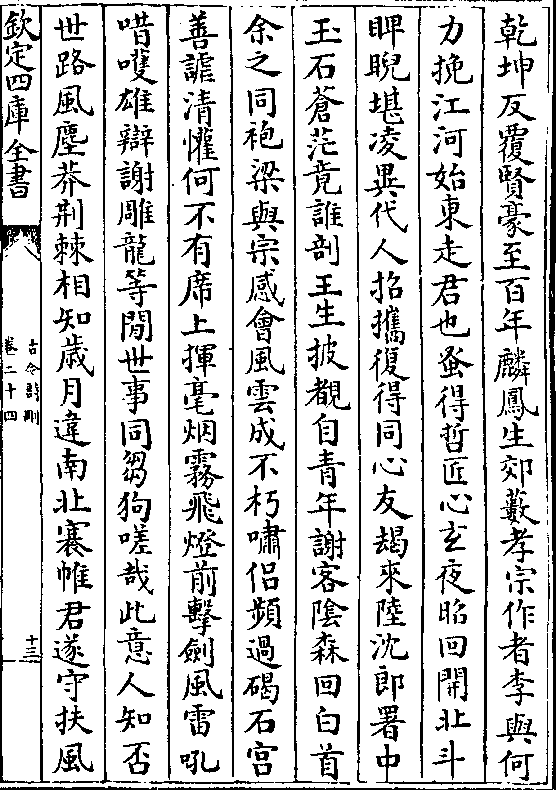 乾坤反覆賢豪至百年麟鳳生郊藪孝宗作者李與何
力挽江河始東走君也蚤得哲匠心玄夜昭回開北斗
睥睨堪凌異代人招攜復得同心友朅來陸沈郎署中
玉石蒼茫竟誰剖王生披覩自青年謝客陰森回白首
余之同袍梁與宗感會風雲成不朽嘯侶頻過碣石宫
善謔清懽何不有席上揮毫烟霧飛燈前擊劍風雷吼
唶嚄雄辯謝雕龍等閒世事同芻狗嗟哉此意人知否
世路風塵莽荆棘相知歲月違南北褰帷君遂守扶風
欽定四庫全書
古今詩刪
卷二十四
十三